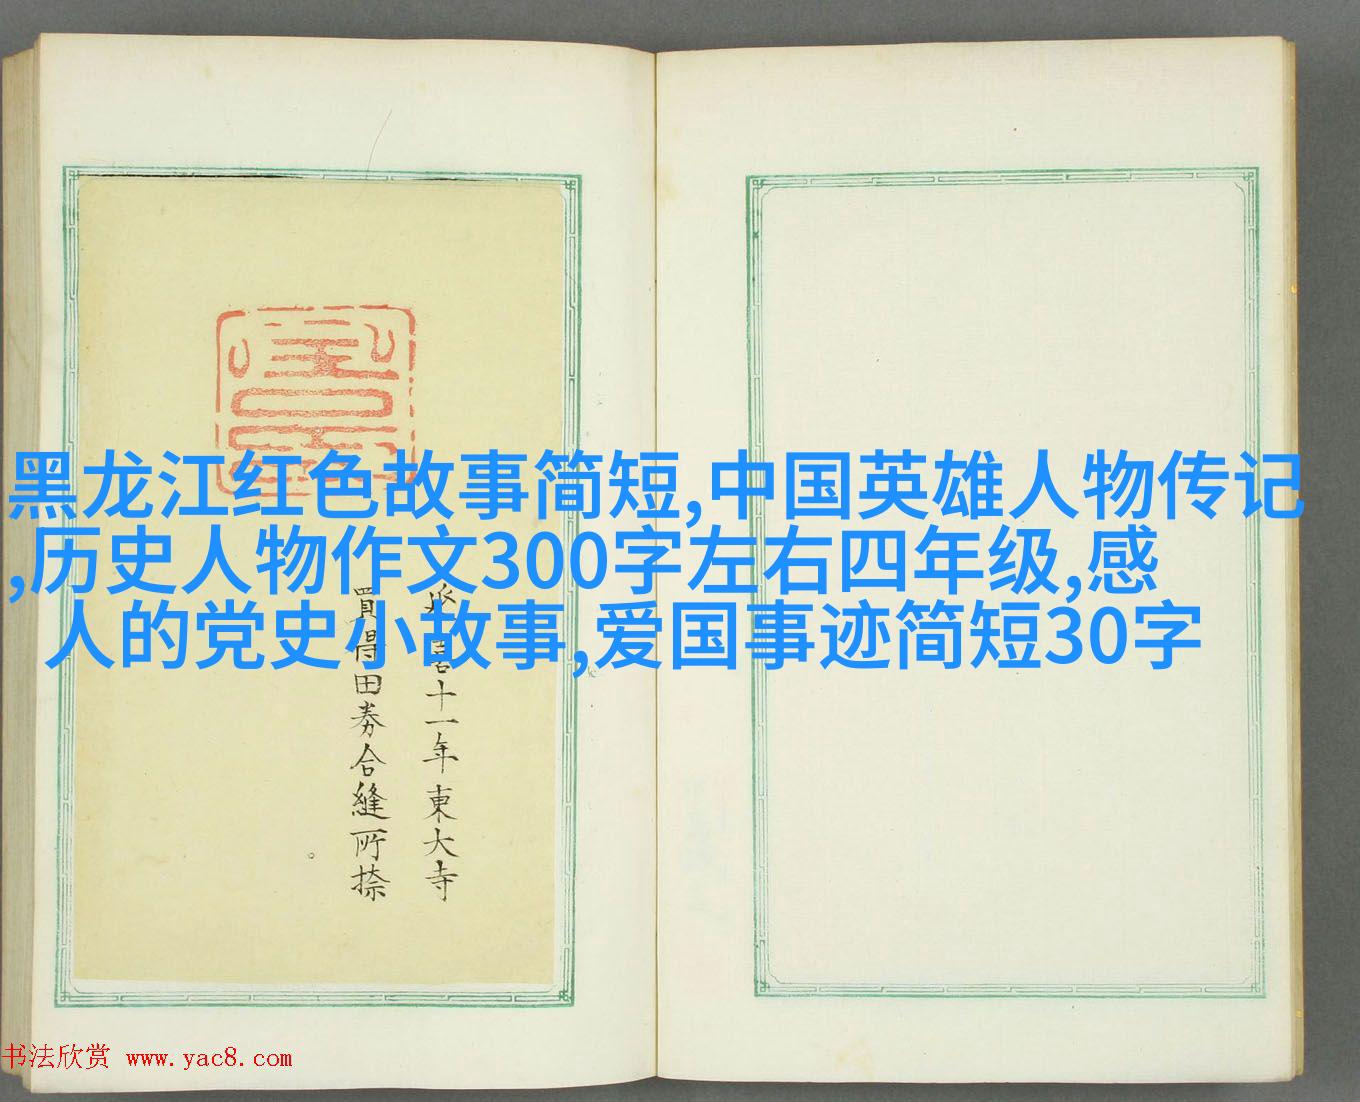 黑龙江红色故事简短,中国英雄人物传记
,历史人物作文300字左右四年级,感
人的党史小故事,爱国事迹简短30字
十一年東大寺
買得田券合縫所捺
书法欣赏 www.yac8.com